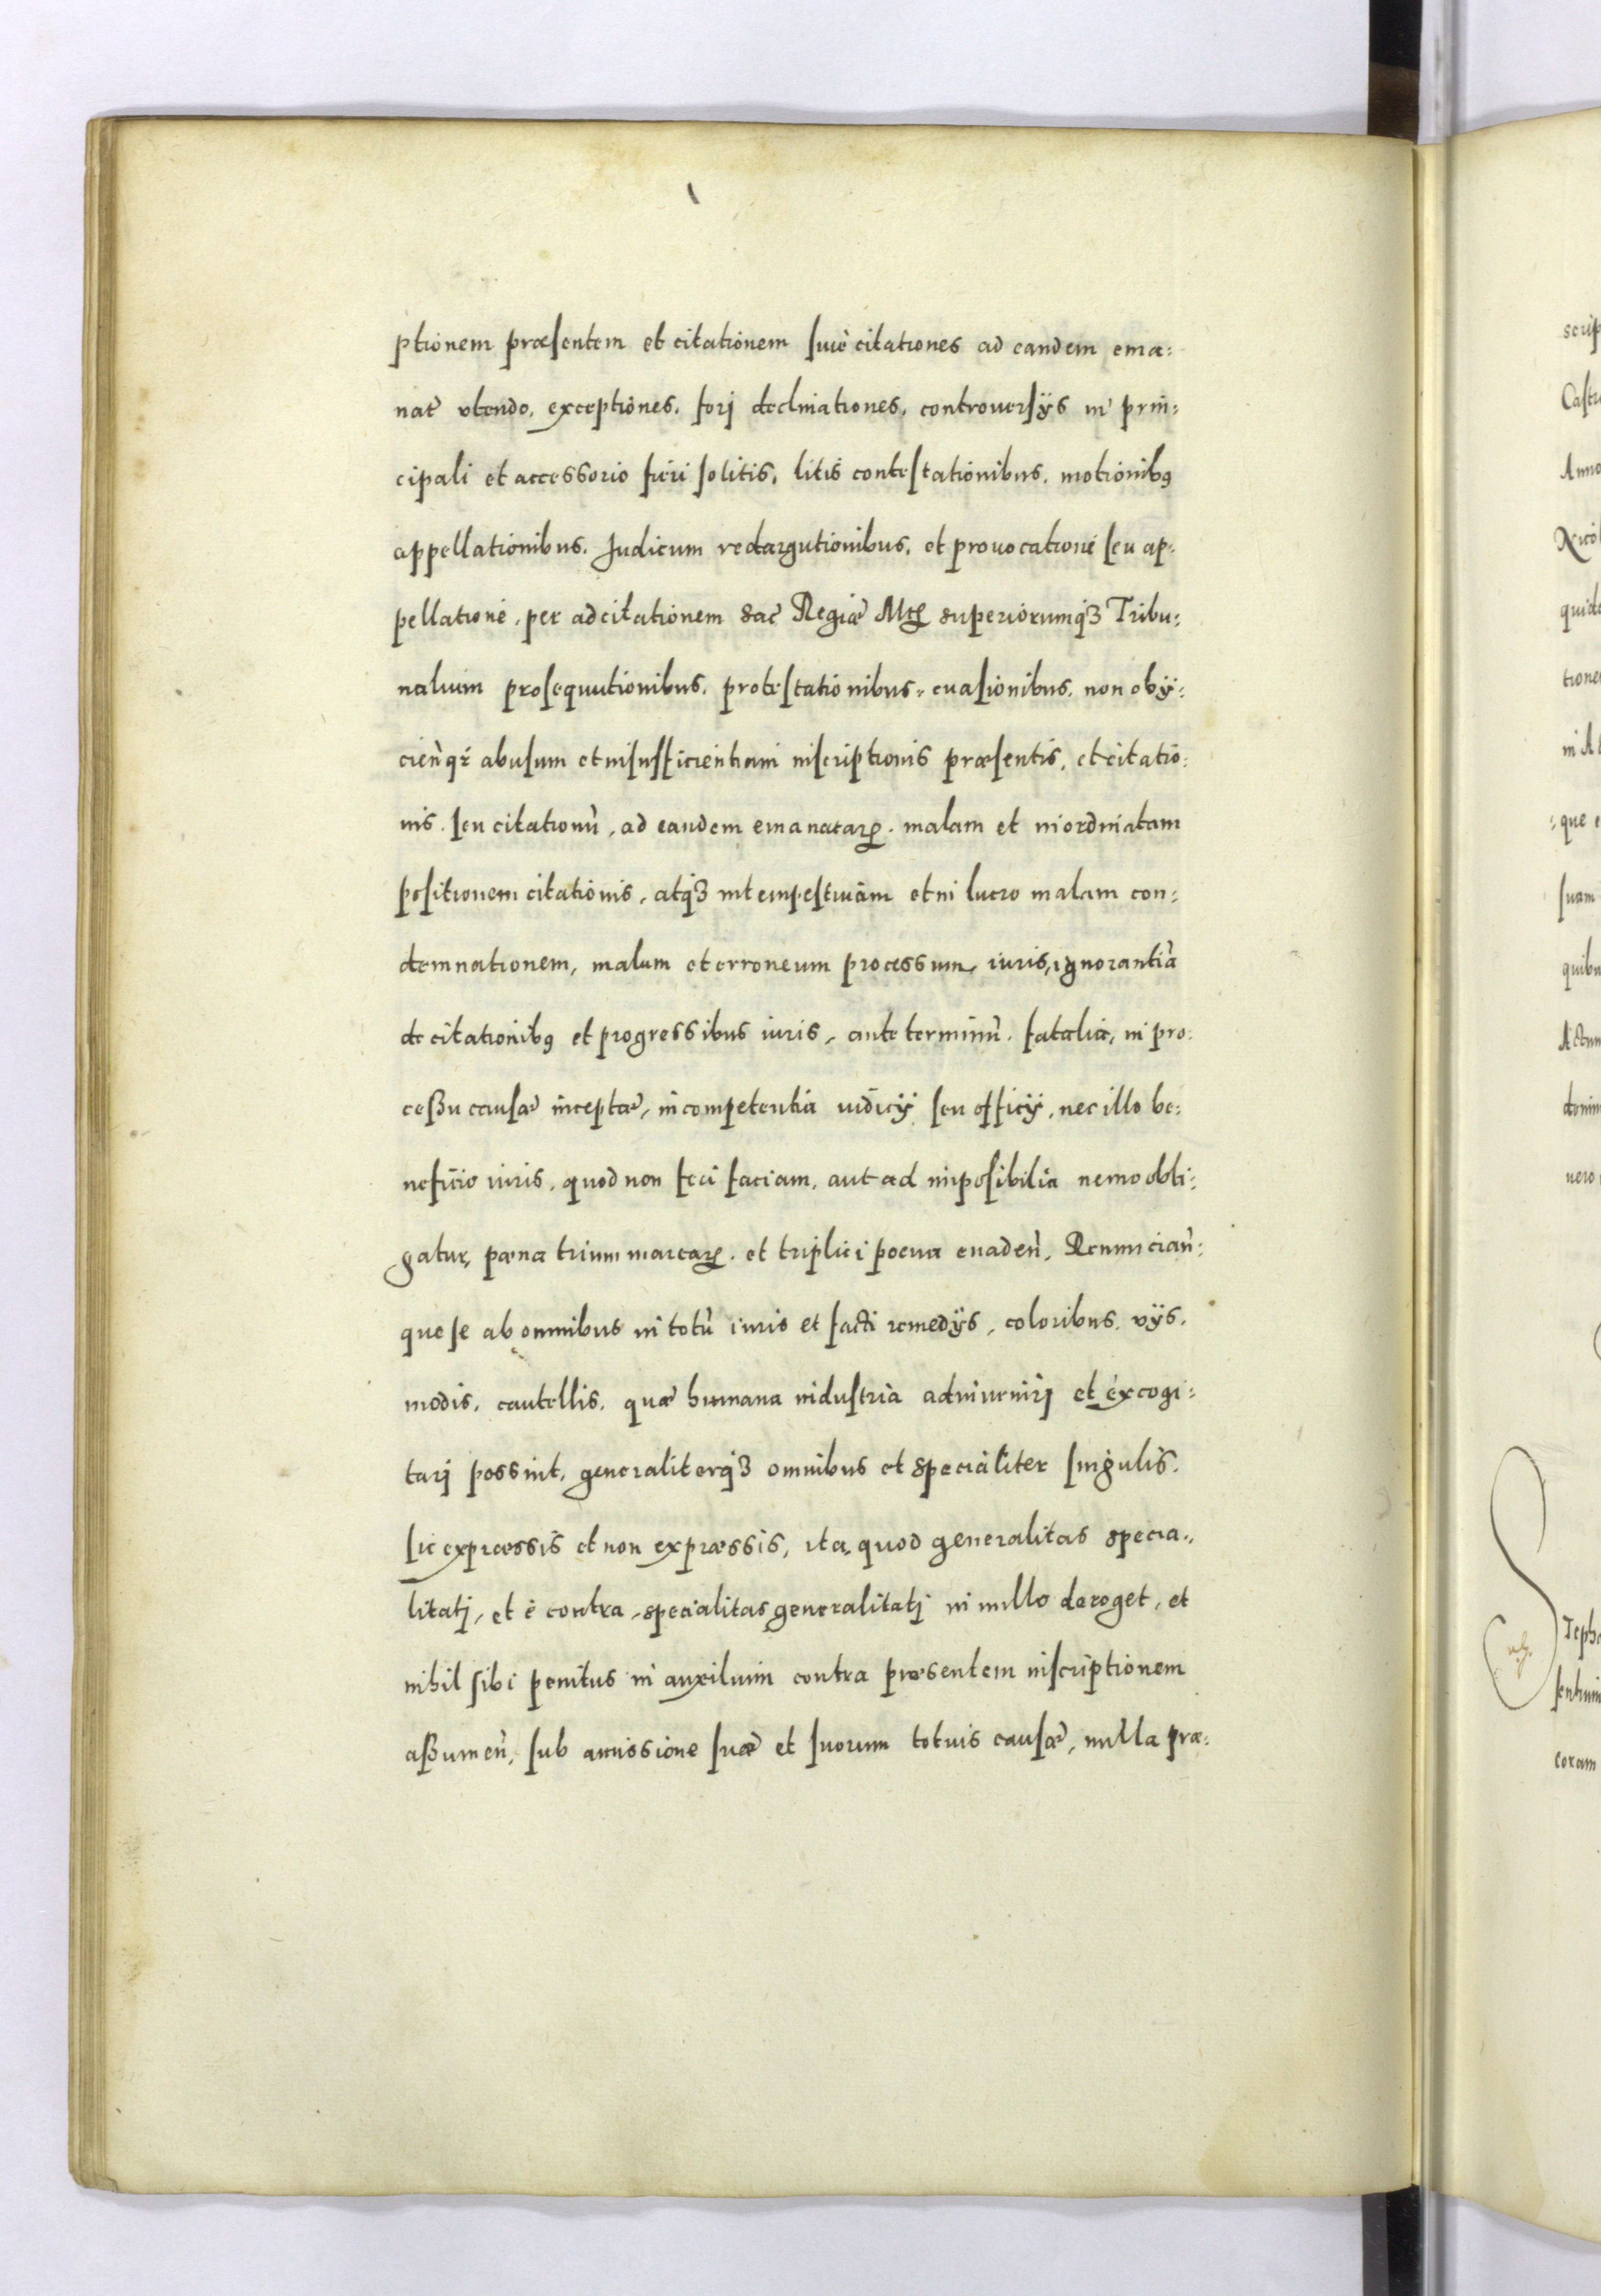 ptionem præsentem et citationem siuè citationes ad eandem ema:
nat utendo, exceptiones, forj declinationes, controuersÿs in prin:
cipali et accessorio fieri solitis, litis contestationibus, motionibꝰ
appellationibus, Judicum redargutionibus, et prouocatione seu ap:
pellatione, per adcitationem sac Regiæ Mtꝭ superiorumqꝫ Tribu:
nalium prosequutionibus, protestationibus, euasionibus, non obÿ:
cieǹqꝫ abusum et insufficientiam inscriptionis præsentis, et citatio:
nis, seu citationù, ad eandem emanatarꝝ, malam et inordinatam
positionem citationis, atqꝫ intempestiuam et in lucro malam con:
demnationem, malum et erroneum processum, iuris, ignorantià
de citationibꝰ et progressibus iuris, ante terminù, fatalia, in pro:
ceßu causæ inceptæ, incompetentia iudicÿ seu officÿ, nec illo be:
neficio iuris, quod non feci faciam, aut ad imposibilia nemo obli:
gatur, pæna trium marcarꝝ, et triplici poena euadeǹ, Renunciaǹ:
que se ab omnibus in totù iuris et facti remedÿs, coloribus, vÿs,
modis, cautellis, quæ humana industria adinuenirj et excogi:
tarj possint, generaliterqꝫ omnibus et specialiter singulis,
sic expræssis et non expræssis, ita, quod generalitas specia:
litatj, et è contra, specialitas generalitatj in nullo deroget, et
nihil sibi penitus in auxilium contra præsentem inscriptionem
aßumeǹ, sub amissione suæ et suorum totius causæ, nulla præ: